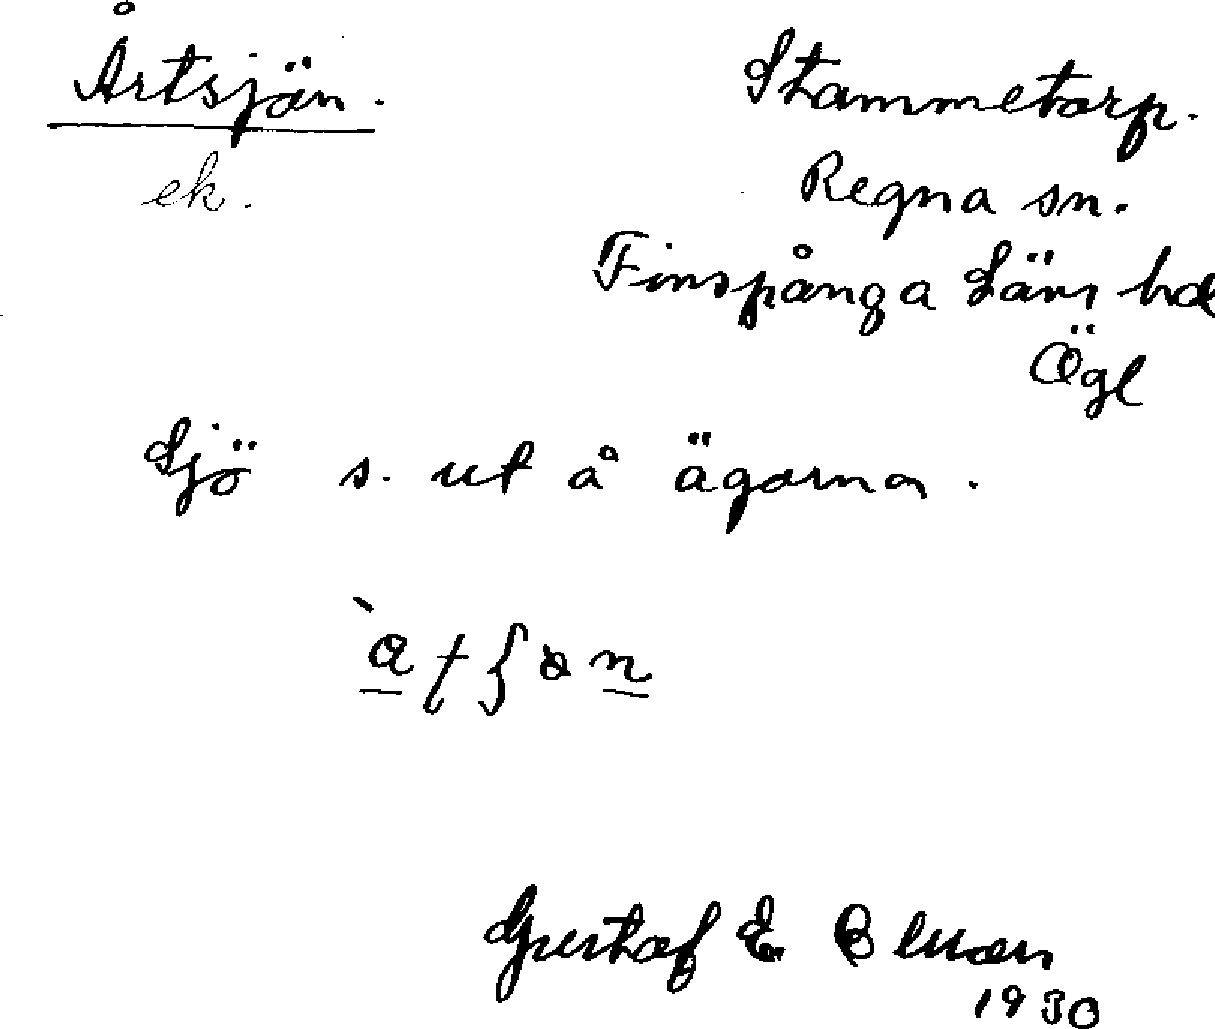 Årtsjön.
ek.
Stammetorp.
Regna sn.
Finspånga Läns hd
Ögl
Sjö s. ut å ägorna.
Gustaf E.
1930